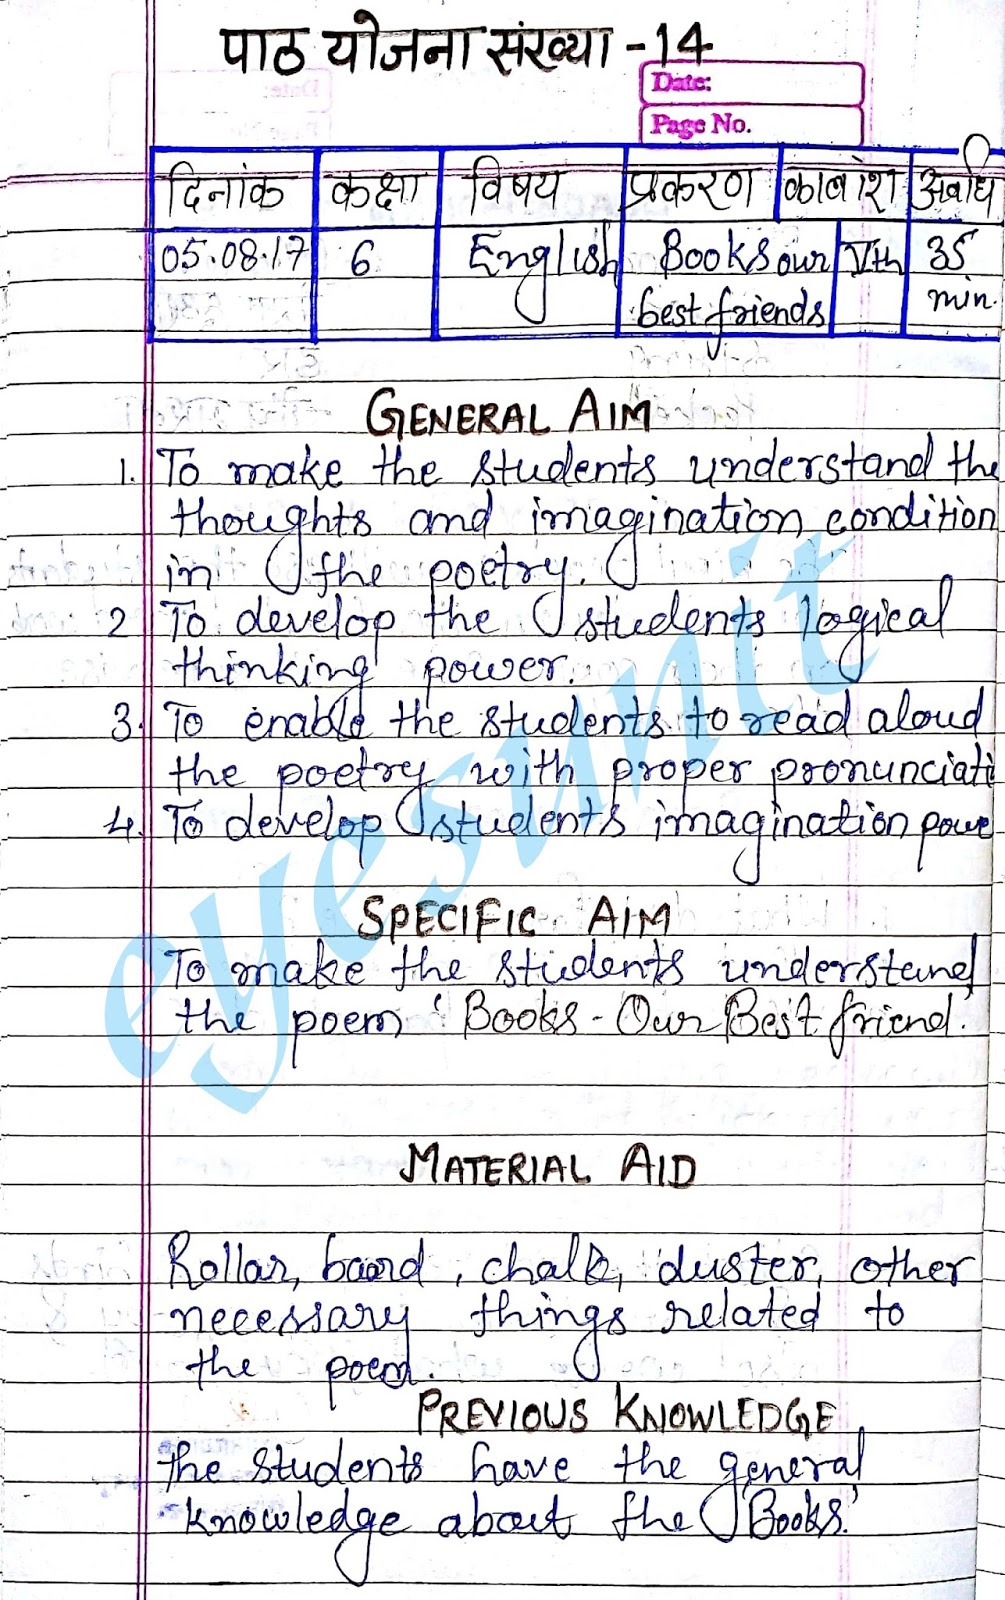 पाठ योजना संख्या - 14
Date:
Page No.
दिनांक कक्षा विषय प्रकरण कालांश अवधि
05.08.17 6 English Books our Vth 35
best friends min.
GENERAL AIM
1. To make the students understand the
thoughts and imagination condition
in the poetry.
2 To develop the students logical
thinking power.
3. To enable the students to read aloud
the poetry with proper pronunciati
4. To develop students imagination powe
eyesunit
SPECIFIC AIM
To make the students understand
the poem 'Books - Our Best friend.
MATERIAL AID
Rollar, board, chalk, duster, other
necessary things related to
the poem.
PREVIOUS KNOWLEDGE
the students have the general
knowledge about the 'Books.'